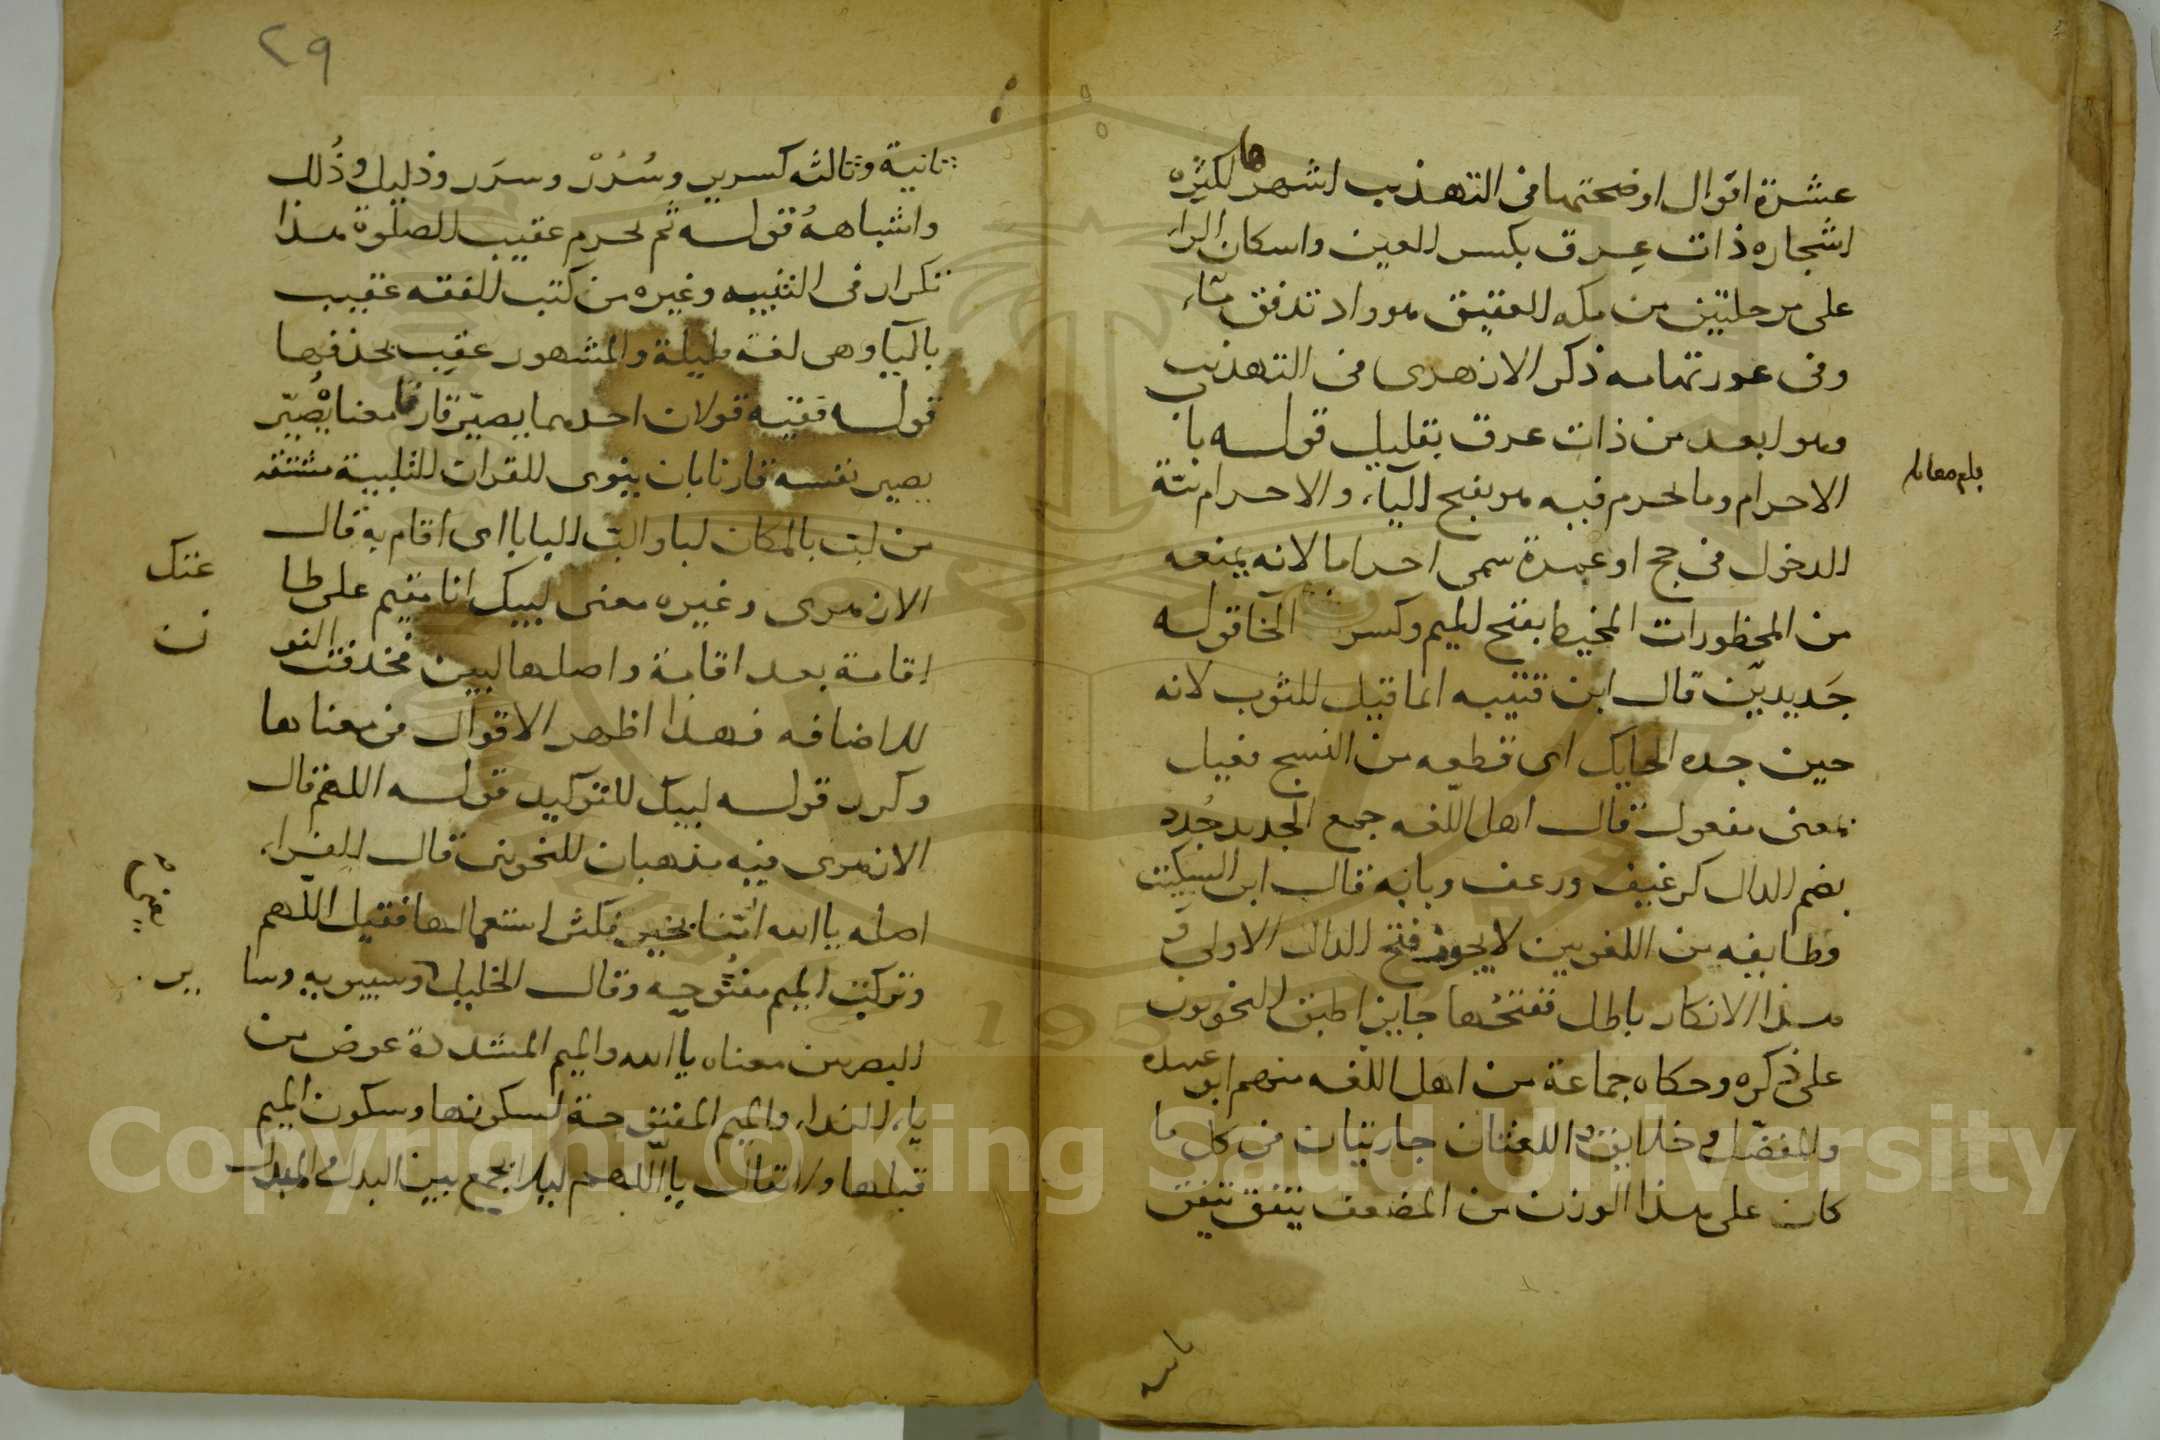 عشرة اقوال اوضحتها فى التهذيب اشهرها لكثره
اشجاره ذات عِرق بكسر العين واسكان الراء
على مرحلتين من مكه العقيق هو واد تدفق ماء
وفى غور تهامه ذكر الازهرى فى التهذيب
وهو ابعد من ذات عرق بقليل قوله باب
الاحرام وما يحرم فيه هو بفتح الياء والاحرام نيّة
الدخول فى حج او عمرة سمى احراما لانه يمنعه
من المحظورات المخيط بفتح الميم وكسر الخا قوله
جَديدين قال ابن قتيبه انما قيل للثوب لانه
حين جده الحايك اى قطعه من النسج فعيل
بمعنى مفعول قال اهل اللغه جمع الجديد جُدد
بضم الدال كرغيف ورغف وبابه قال ابن السيكيت
وطايفه من اللغويين لا يجوز فتح الدال الاولى و
هذا الانكار باطل ففتحُها جايز اطبق النحويون
على ذكره وحكاه جماعة من اهل اللغه منهم ابو عبيده
والمفضّل وخلايق و اللغتان جاريتان فى كل ما
كان على هذا الوزن من المضعف يتفق
ثانية وثالثه كسرير وسُرُرْ وسرَر وذليل وذُلل
واشباههُ قوله ثم يحرم عقيب الصلوة هذا
تكرار فى التنبيه وغيره من كتب الفقه عقيب
بالياء وهى لغة قليلة والمشهور عقِب بحذفها
قوله ففيه قولان احدهما يصيّر قارنا معناه يُصيّر
يصير نفسه قارنا بان ينوى القران التلبية مشتقه
من لبّ بالمكان لبا والبّ البابا اى اقام به قال
الازهرى وغيره معنى لبيك انا مقيم على طا
عتك
اقامة بعد اقامة واصلها لبين فحذفت النو
ن
للاضافه فهذا اظهر الاقوال فى معناها
وكرر قوله لبيك للتوكيد قوله اللهم قال
الازهرى فيه مذهبان للنحويين قال الفراء
اصله يا الله امّنا بخير فكثر استعمالها فقيل اللّهم
وتركت الميم مفتُوحة وقال الخليل وسيبويه وسا
ير
البصرين معناه يا الله والميم المشددة عوض من
ياء النداء والميم المفتوحة لسكونها وسكون الميم
قبلها ولا تقال يا اللّهم ليلا يجمع بين البدل والمبدل
٢٩
Copyright © King Saud University
1957